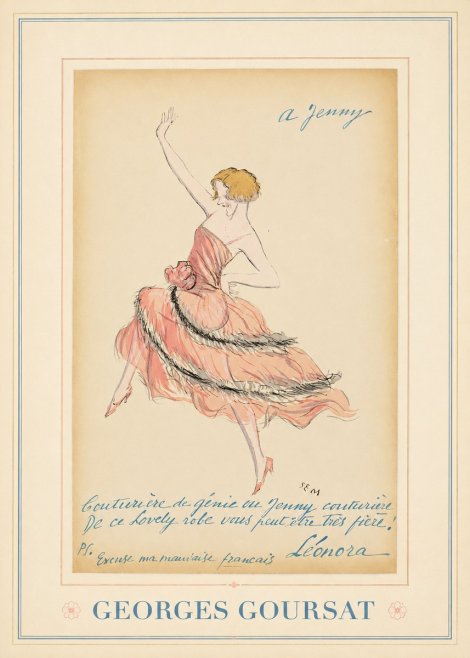 a Jenny
SEM
Couturière de génie ou Jenny couturière
De ce lovely robe vous peut être très fière!
PS. Excuse ma mauvaise francais Léonora
GEORGES GOURSAT